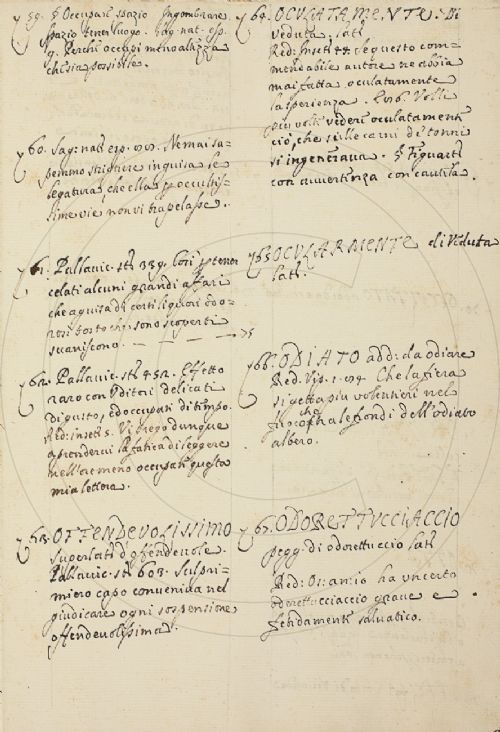 59. § Occupare spazio Ingombrare
spazio tener luogo. Sag. nat. esp.
9. Perchè occupi meno altezza
che sia possibile.
60. Sag: nat: esp. Nè mai sa-
pemmo strignere in guisa le
legature, che ella p occultis-
sime vie non vi trapelasse.
61. Pallavic. st: 339. Così p tener
celati alcuni grandi affari
che a guisa di certi liquori odo-
rosi tosto che sono scoperti
svaniscono.
62. Pallavic. st: 452. Effetto
raro con uditori delicati
di gusto, ed occupati di tempo.
Red: inset: 5. Vi prego dunque
a prendervi la fatica di leggere
nell'ore meno occupati questa
mia lettera.
63. OFFENDEVOLISSIMO
Superlat: d'offendevole.
Pallavic. st: 603. Sul pri-
miero capo conveniva nel
giudicare ogni sospensione
offendevolissima.
64. OCULATAMENTE. Di
veduta. lat:
Red: inset: 44. Se questo com-
mendabile autore ne abbia
mai fatta oculatamente
la sperienza. Volli
più volte vedere oculatament:
ciò, che sulle carni de' tonni
si ingenerava. § Figurat:
con avvertenza con cautela.
65 OCULARMENTE di Veduta
lat:
66. ODIATO add: da odiare
Red. Vip. 1. Che la fiera
si getta più volentieri nel
fuoco che tra le frondi dell'odiato
albero.
67. ODORETTUCCIACCIO
pegg. di odorettuccio lat:
Red: Os: an: io ha un certo
odorettucciaccio grave e
fendament: salvatico.